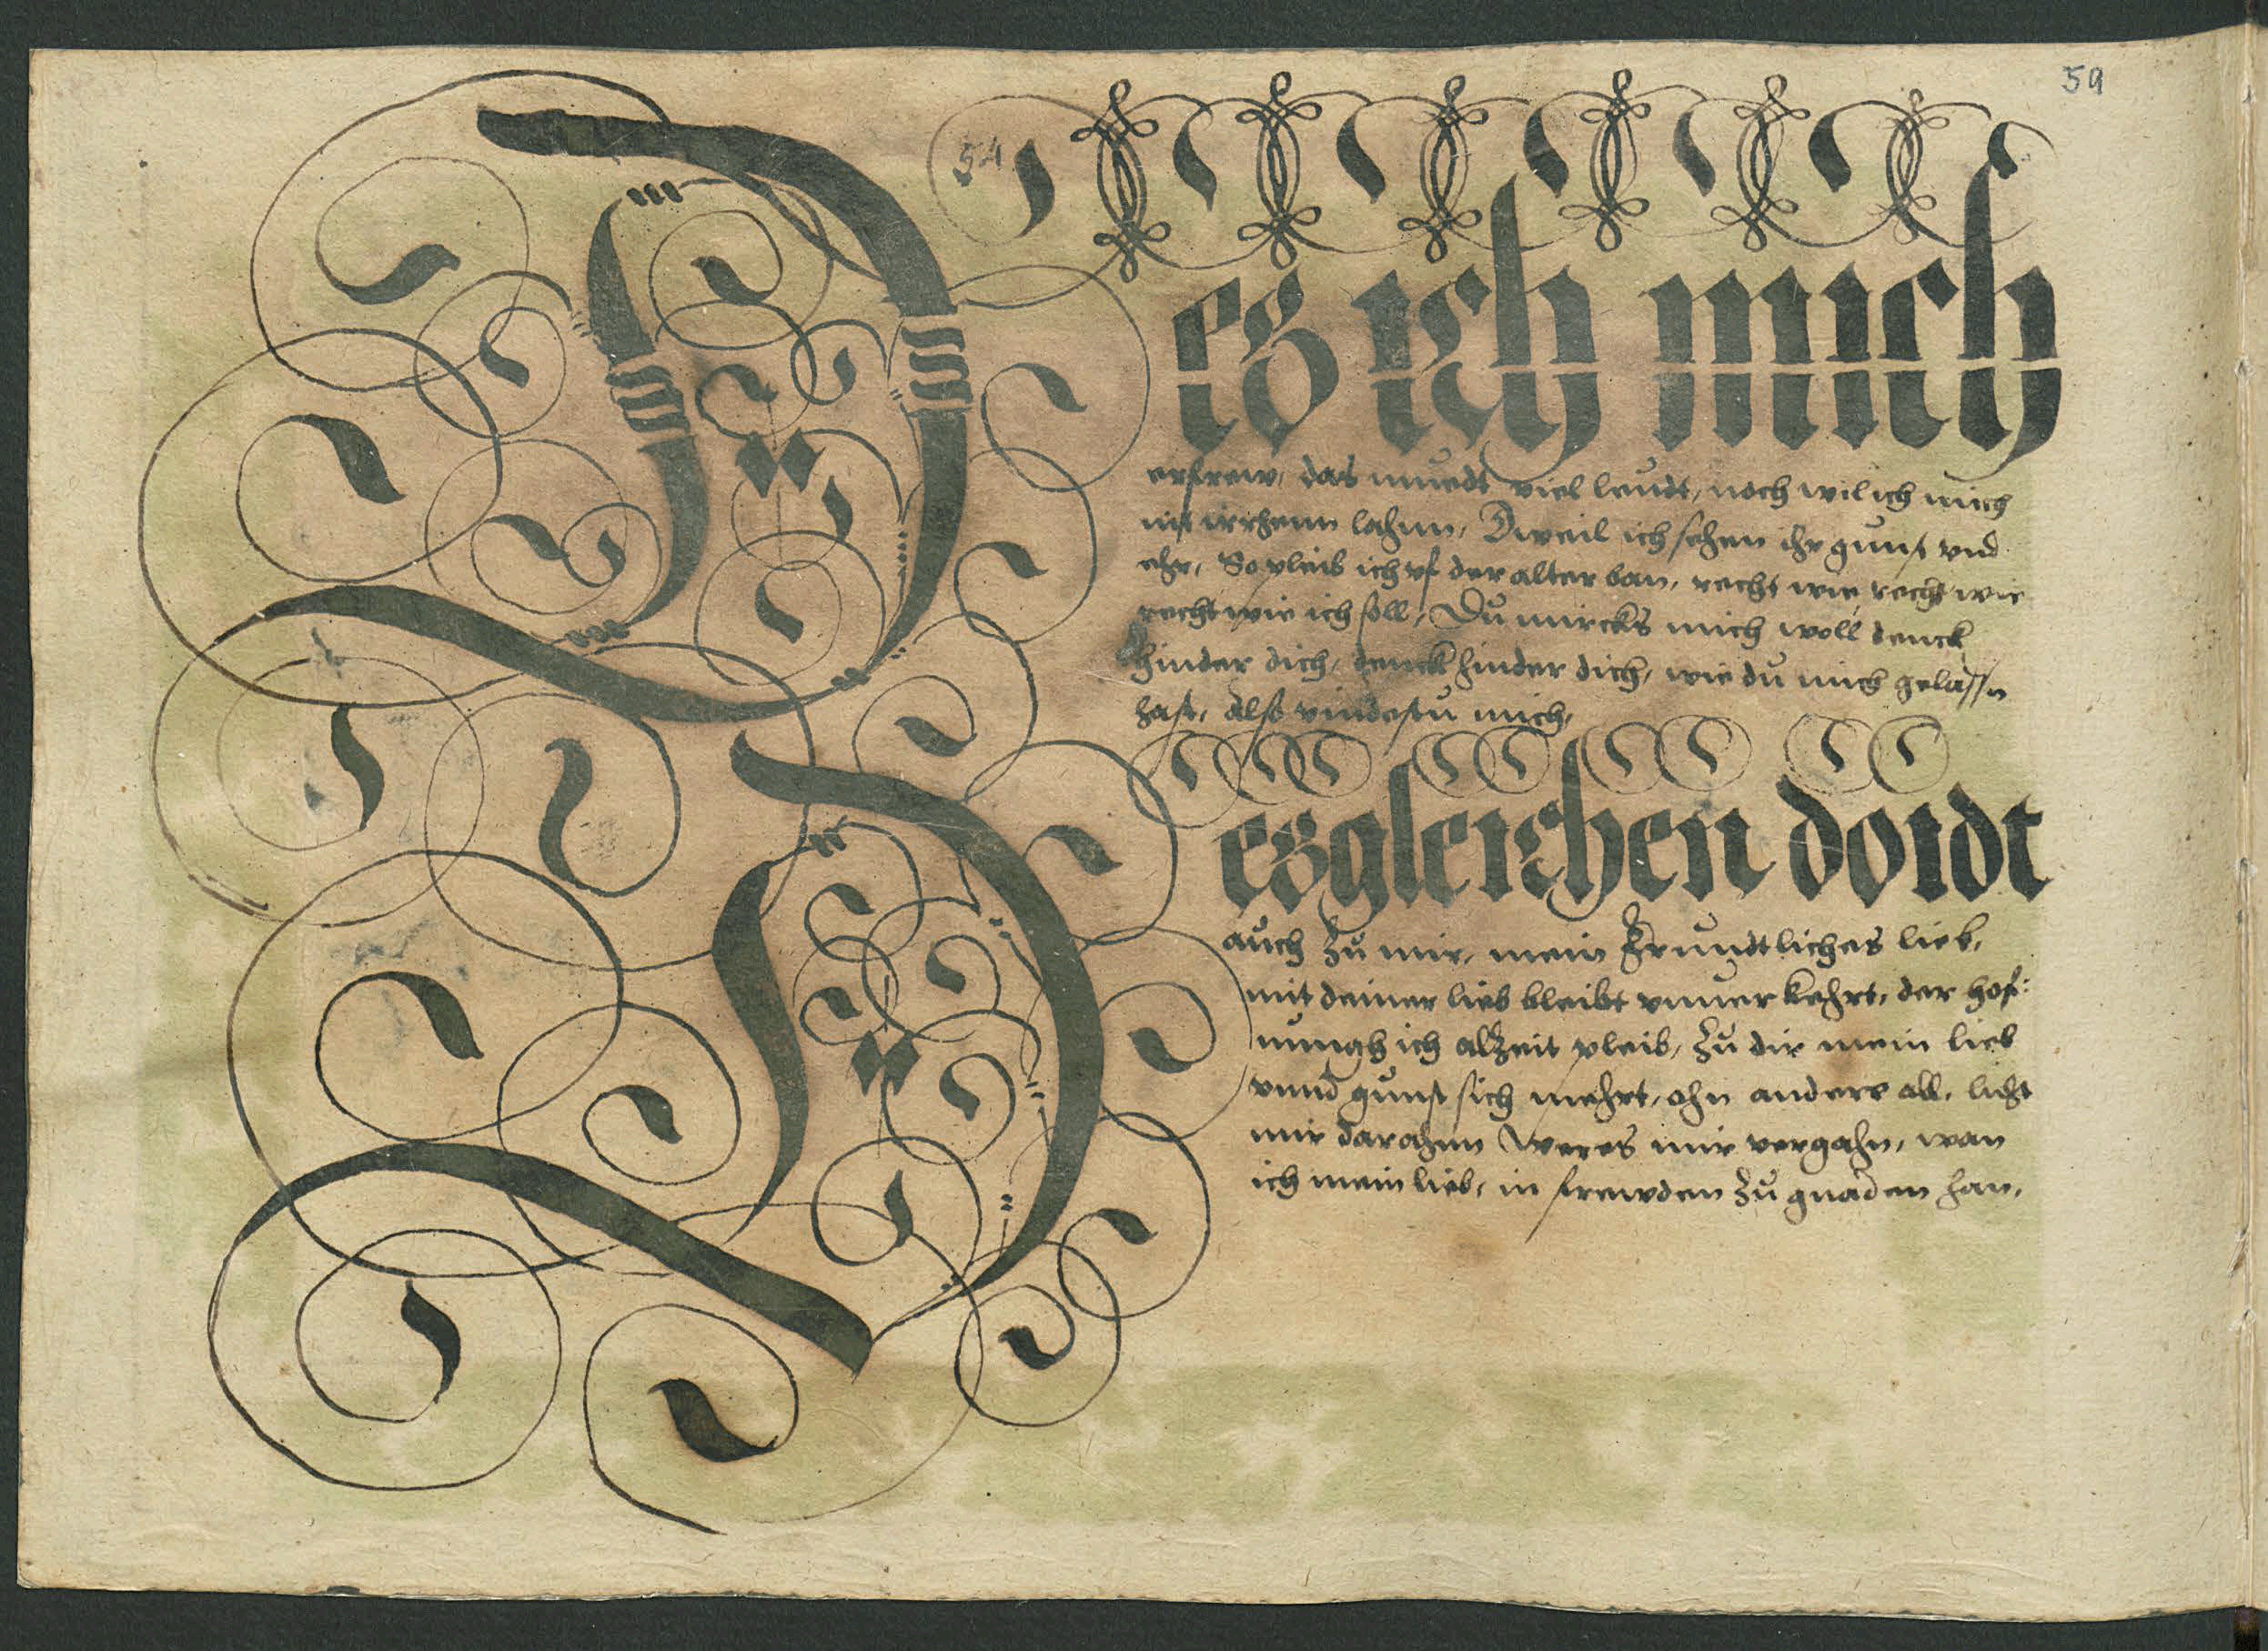 59
54
Deß ich mich
erfrew, das muedt viel leudt, noch wil ich mich
nit irrhenn lahnn, Dweil ich sehen ihr gunst vnd
ehr, So pleib ich vf der alter ban, recht wie, recht wie
recht wie ich soll, Du mircks mich woll denck
hinder dich, denck hinder dich, wie du mich gelassn
hast, also vindestu mich,
Deßgleichen doidt
auch zu mir, mein Frundtliches lieb,
mit deiner lieb bleibt vnuerkehrt, der hof:
nungh ich alzeit pleib, zu dir mein lieb
vnnd gunst sich mehrt, ohn andere all, licht
mir darahnn weres mir vergahn, wan
ich mein lieb, in frewden zu gnaden han,